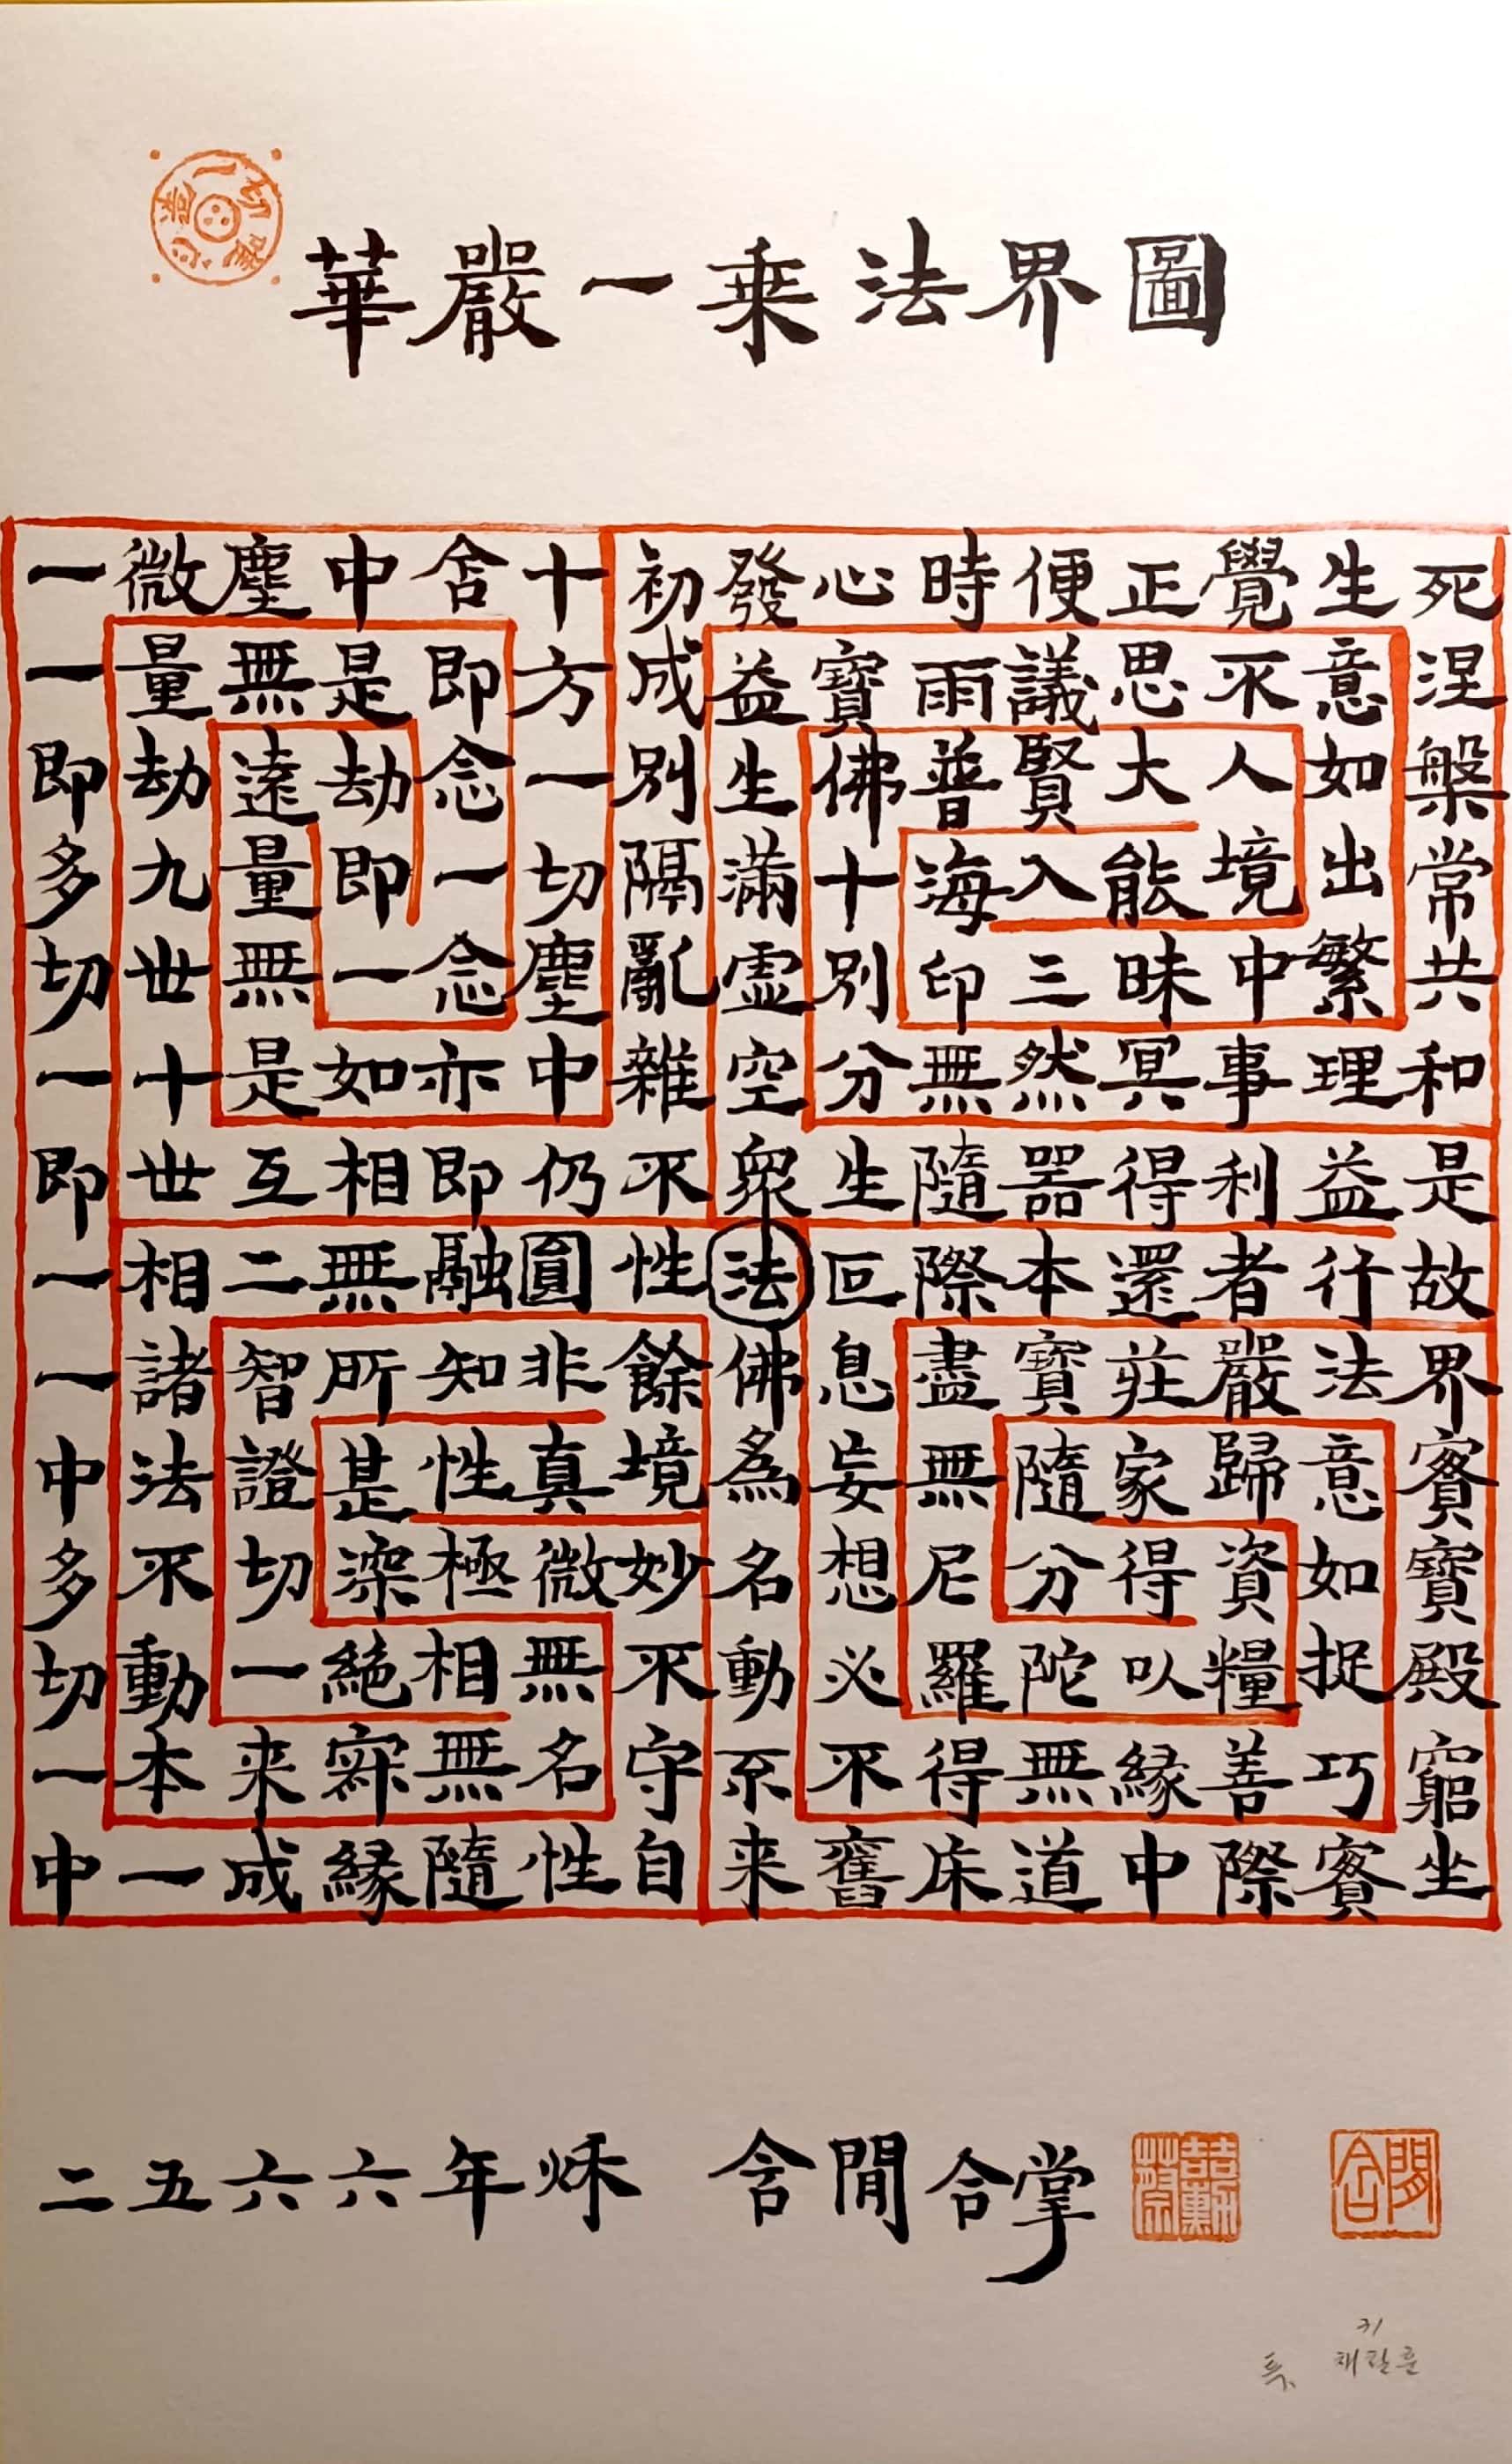 華嚴一乘法界圖
一微塵中含十初發心時便正覺生死
一量無是即方成益寶雨議思不意涅
即劫遠劫念一別生佛普賢大人如槃
多九量即一切隔滿十海入能境出常
切世無一念塵亂虛別印三昧中繁共
一十是如亦中雜空分無然冥事理和
即世互相即仍不衆生隨器得利益是
一相二無融圓性法叵際本還者行故
一諸智所知非餘佛息盡寶莊嚴法界
中法證甚性真境為妄無隨家歸意實
多不切深極微妙名想尼分得資如寶
切動一絕相無不動必羅陀以糧捉殿
一本来寂無名守不不得無縁善巧窮
中一成縁隨性自来舊床道中際實坐
二五六六年秌 含閒合掌